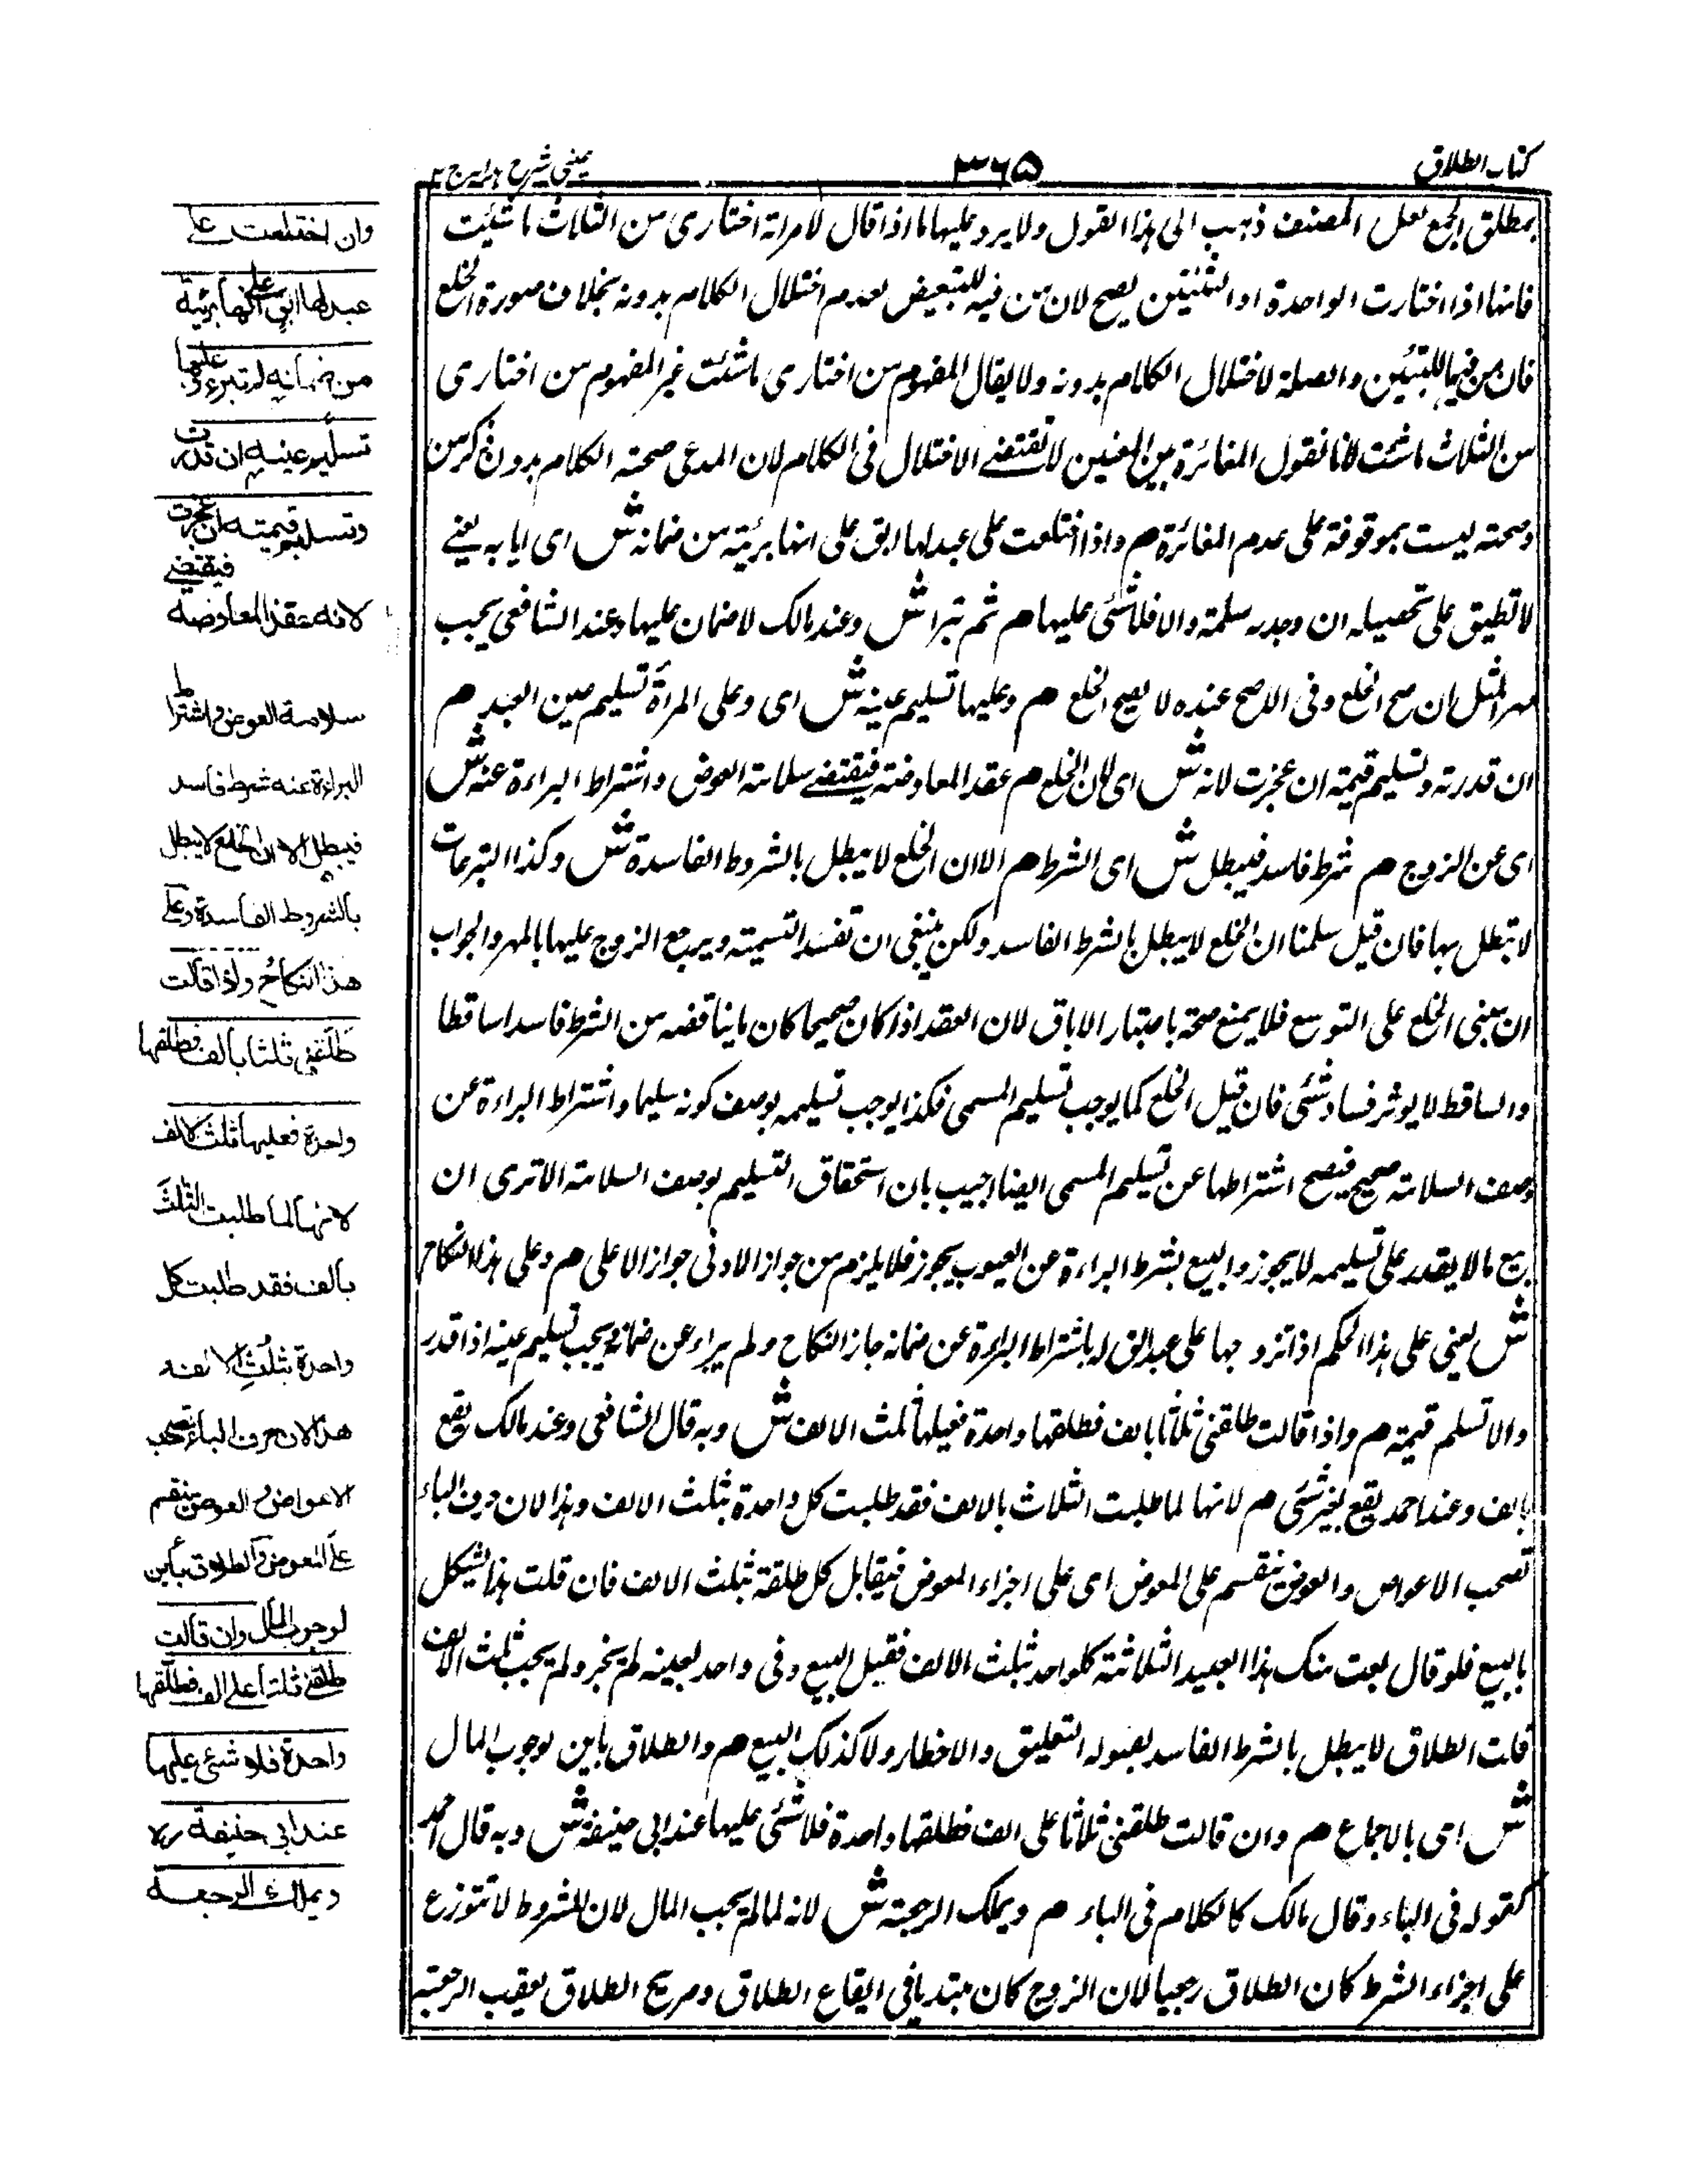 كتاب الطلاق
٣٦٥
عینی شرح هدایه ج ٢
بمطلق الجمع لعل المصنف ذهب الى هذا القول ولا يرد عليها ما اذا قال لامراته اختارى من الثلاث ما شئت
فانها اذا اختارت الواحدة او الثنتين يصح لان من فيه للتبعيض لعدم اختلال الكلام بدونه بخلاف صورة الخلع
فان من فيها للتبيين والصلة لاختلال الكلام بدونه ولا يقال المفهوم من اختارى ما شئت غير المفهوم من اختارى
من الثلاث ما شئت لانا نقول المغائرة بين المعنيين لا تقتضے الاختلال فى الكلام لان المدعى صحته الكلام بدون ذكر من
وصحته ليست بموقوفة على عدم المغائرة م واذا اختلعت على عبد لها ابق على انها بريئة من ضمانه ش اى ابابه يعنے
لا تطيق على تحصيله ان وجدته سلمته والا فلا شئى عليها م ثم تبرا ش وعند مالك لا ضمان عليها وعند الشافعى يجب
مهر المثل ان صح الخلع وفى الاصح عنده لا يصح الخلع م وعليها تسليم عينه ش اى وعلى المرأة تسليم عين العبد م
ان قدرته وتسليم قيمته ان عجزت لانه ش اى لان الخلع م عقد المعاوضته فيقتضے سلامته العوض واشتراط البراءة عنه ش
اى عن الزوج م شرط فاسد فيبطل ش اى الشرط م الا ان الخلع لا يبطل بالشروط الفاسدة ش وكذا التبرعات
لا تبطل بها فان قيل سلمنا ان الخلع لا يبطل بالشرط الفاسد ولكن ينبغى ان تفسد التسمية ويرجع الزوج عليها بالمهر والجواب
ان مبنى الخلع على التوسع فلا يمنع صحته باعتبار الاباق لان العقد اذا كان صحيحا كان ما يناقضه من الشرط فاسدا ساقطا
والساقط لا يوثر فساد شئى فان قيل الخلع كما يوجب تسليم المسمى فكذا يوجب تسليمه بوصف كونه سليما واشتراط البراءة عن
وصف السلامته صحيح فيصح اشتراطها عن تسليم المسمى ايضا اجيب بان استحقاق التسليم بوصف السلامته الا ترى ان
بيع مالا يقدر على تسليمه لا يجوز والبيع بشرط البراءة عن العيوب يجوز فلا يلزم من جواز الادنى جواز الاعلى م وعلى هذا النكاح
ش يعنى على هذا الحكم اذا تزوجها على عبد ابق له باشتراط البراءة عن ضمانه جاز النكاح ولم يبراء عن ضمانه ويجب تسليم عينه اذا قدر
والا تسلم قيمته م واذا قالت طلقنى ثلاثا بالف فطلقها واحدة فعليها ثلث الالف ش وبه قال الشافعى وعند مالك يقع
بالف وعند احمد يقع بغير شئى م لانها لما طلبت الثلاث بالالف فقد طلبت كل واحدة بثلث الالف وهذا لان حرف الباء
تصحب الاعواض والعوض ينقسم على المعوض اى على اجزاء المعوض فيقابل كل طلقة بثلث الالف فان قلت هذا يشكل
بالبيع فلو قال بعت منك هذا العبيد الثلاثة كلواحد بثلث الالف فقبل البيع وفى واحد بعينه لم يجز ولم يجب ثلث الالف
قلت الطلاق لا يبطل بالشرط الفاسد بقبوله التعليق والاخطار ولا كذلك البيع م والطلاق باين لوجوب المال
ش اى بالاجماع م وان قالت طلقنى ثلاثا على الف فطلقها واحدة فلا شئى عليها عند ابى حنيفة ش وبه قال احمد
كقوله فى الباء وقال مالك كالكلام فى الباء م ويملك الرجعته ش لانه لما لم يجب المال لان الشروط لا تتوزع
على اجزاء الشرط كان الطلاق رجعيا لان الزوج كان مبتديا فى ايقاع الطلاق وصريح الطلاق يعقب الرجعته
وان اختلعت على
عبد لها ابق على انها بريئة
من ضمانه لم تبرء وعليها
تسليم عينه ان قدرت
وتسليم قيمته ان عجزت
لانه عقد المعاوضة فيقتضے
سلامة العوض واشتراط
البراءة عنه شرط فاسد
فيبطل الا ان الخلع لا يبطل
بالشروط الفاسدة وعلى
هذا النكاح واذا قالت
طلقنى ثلثا بالف فطلقها
واحدة فعليها ثلث الالف
لانها لما طلبت الثلث
بالف فقد طلبت كل
واحدة بثلث الالف
هذا لان حرف الباء تصحب
الاعواض والعوض ينقسم
على المعوض والطلاق باين
لوجوب المال وان قالت
طلقنى ثلثا على الف فطلقها
واحدة فلا شئ عليها
عند ابى حنيفة رح
ويملك الرجعة